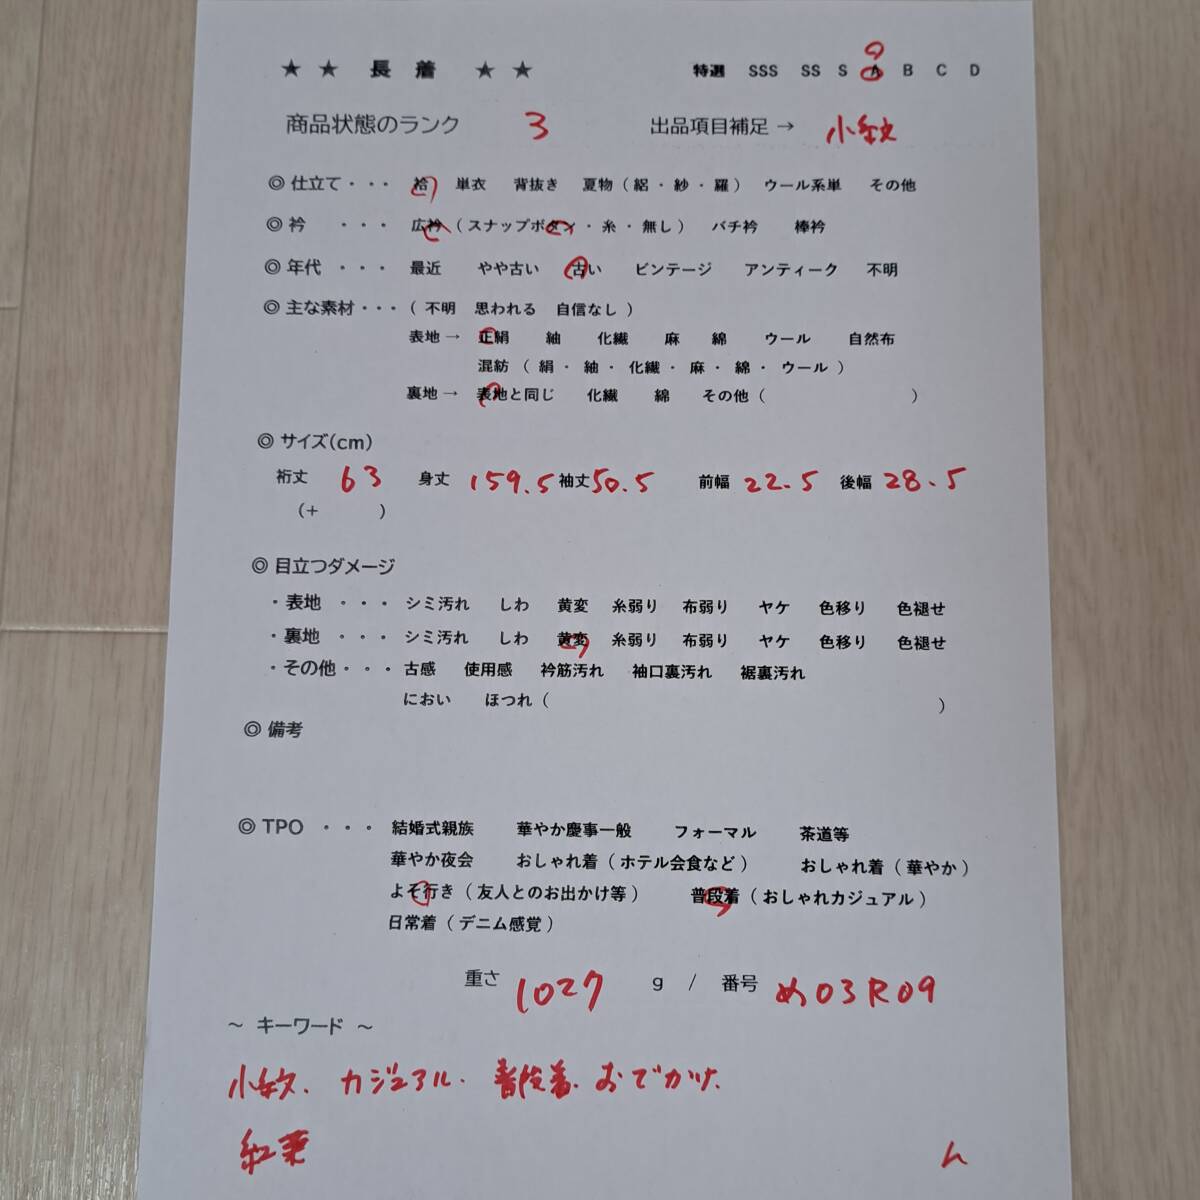 ★ ★ 長 着 ★ ★ 特選 SSS SS S A B C D
商品状態のランク 3 出品項目補足 → 小紋
◎ 仕立て・・・ 袷 単衣 背抜き 夏物（絽・紗・羅） ウール系単 その他
◎ 衿 ・・・ 広衿（スナップボタン・糸・無し） バチ衿 棒衿
◎ 年代 ・・・ 最近 やや古い 古い ビンテージ アンティーク 不明
◎ 主な素材・・・（不明 思われる 自信なし）
表地 → 正絹 紬 化繊 麻 綿 ウール 自然布
混紡（絹・紬・化繊・麻・綿・ウール）
裏地 → 表地と同じ 化繊 綿 その他（ ）
◎ サイズ(cm)
裄丈 63 身丈 159.5 袖丈 50.5 前幅 22.5 後幅 28.5
（+ ）
◎ 目立つダメージ
・表地 ・・・ シミ汚れ しわ 黄変 糸弱り 布弱り ヤケ 色移り 色褪せ
・裏地 ・・・ シミ汚れ しわ 黄変 糸弱り 布弱り ヤケ 色移り 色褪せ
・その他・・・ 古感 使用感 衿筋汚れ 袖口裏汚れ 裾裏汚れ
におい ほつれ（ ）
◎ 備考
◎ TPO ・・・ 結婚式親族 華やか慶事一般 フォーマル 茶道等
華やか夜会 おしゃれ着（ホテル会食など） おしゃれ着（華やか）
よそ行き（友人とのお出かけ等） 普段着（おしゃれカジュアル）
日常着（デニム感覚）
重さ 1027 g / 番号 め03R09
～ キーワード ～
小紋. カジュアル. 普段着. おでかけ.
紅葉